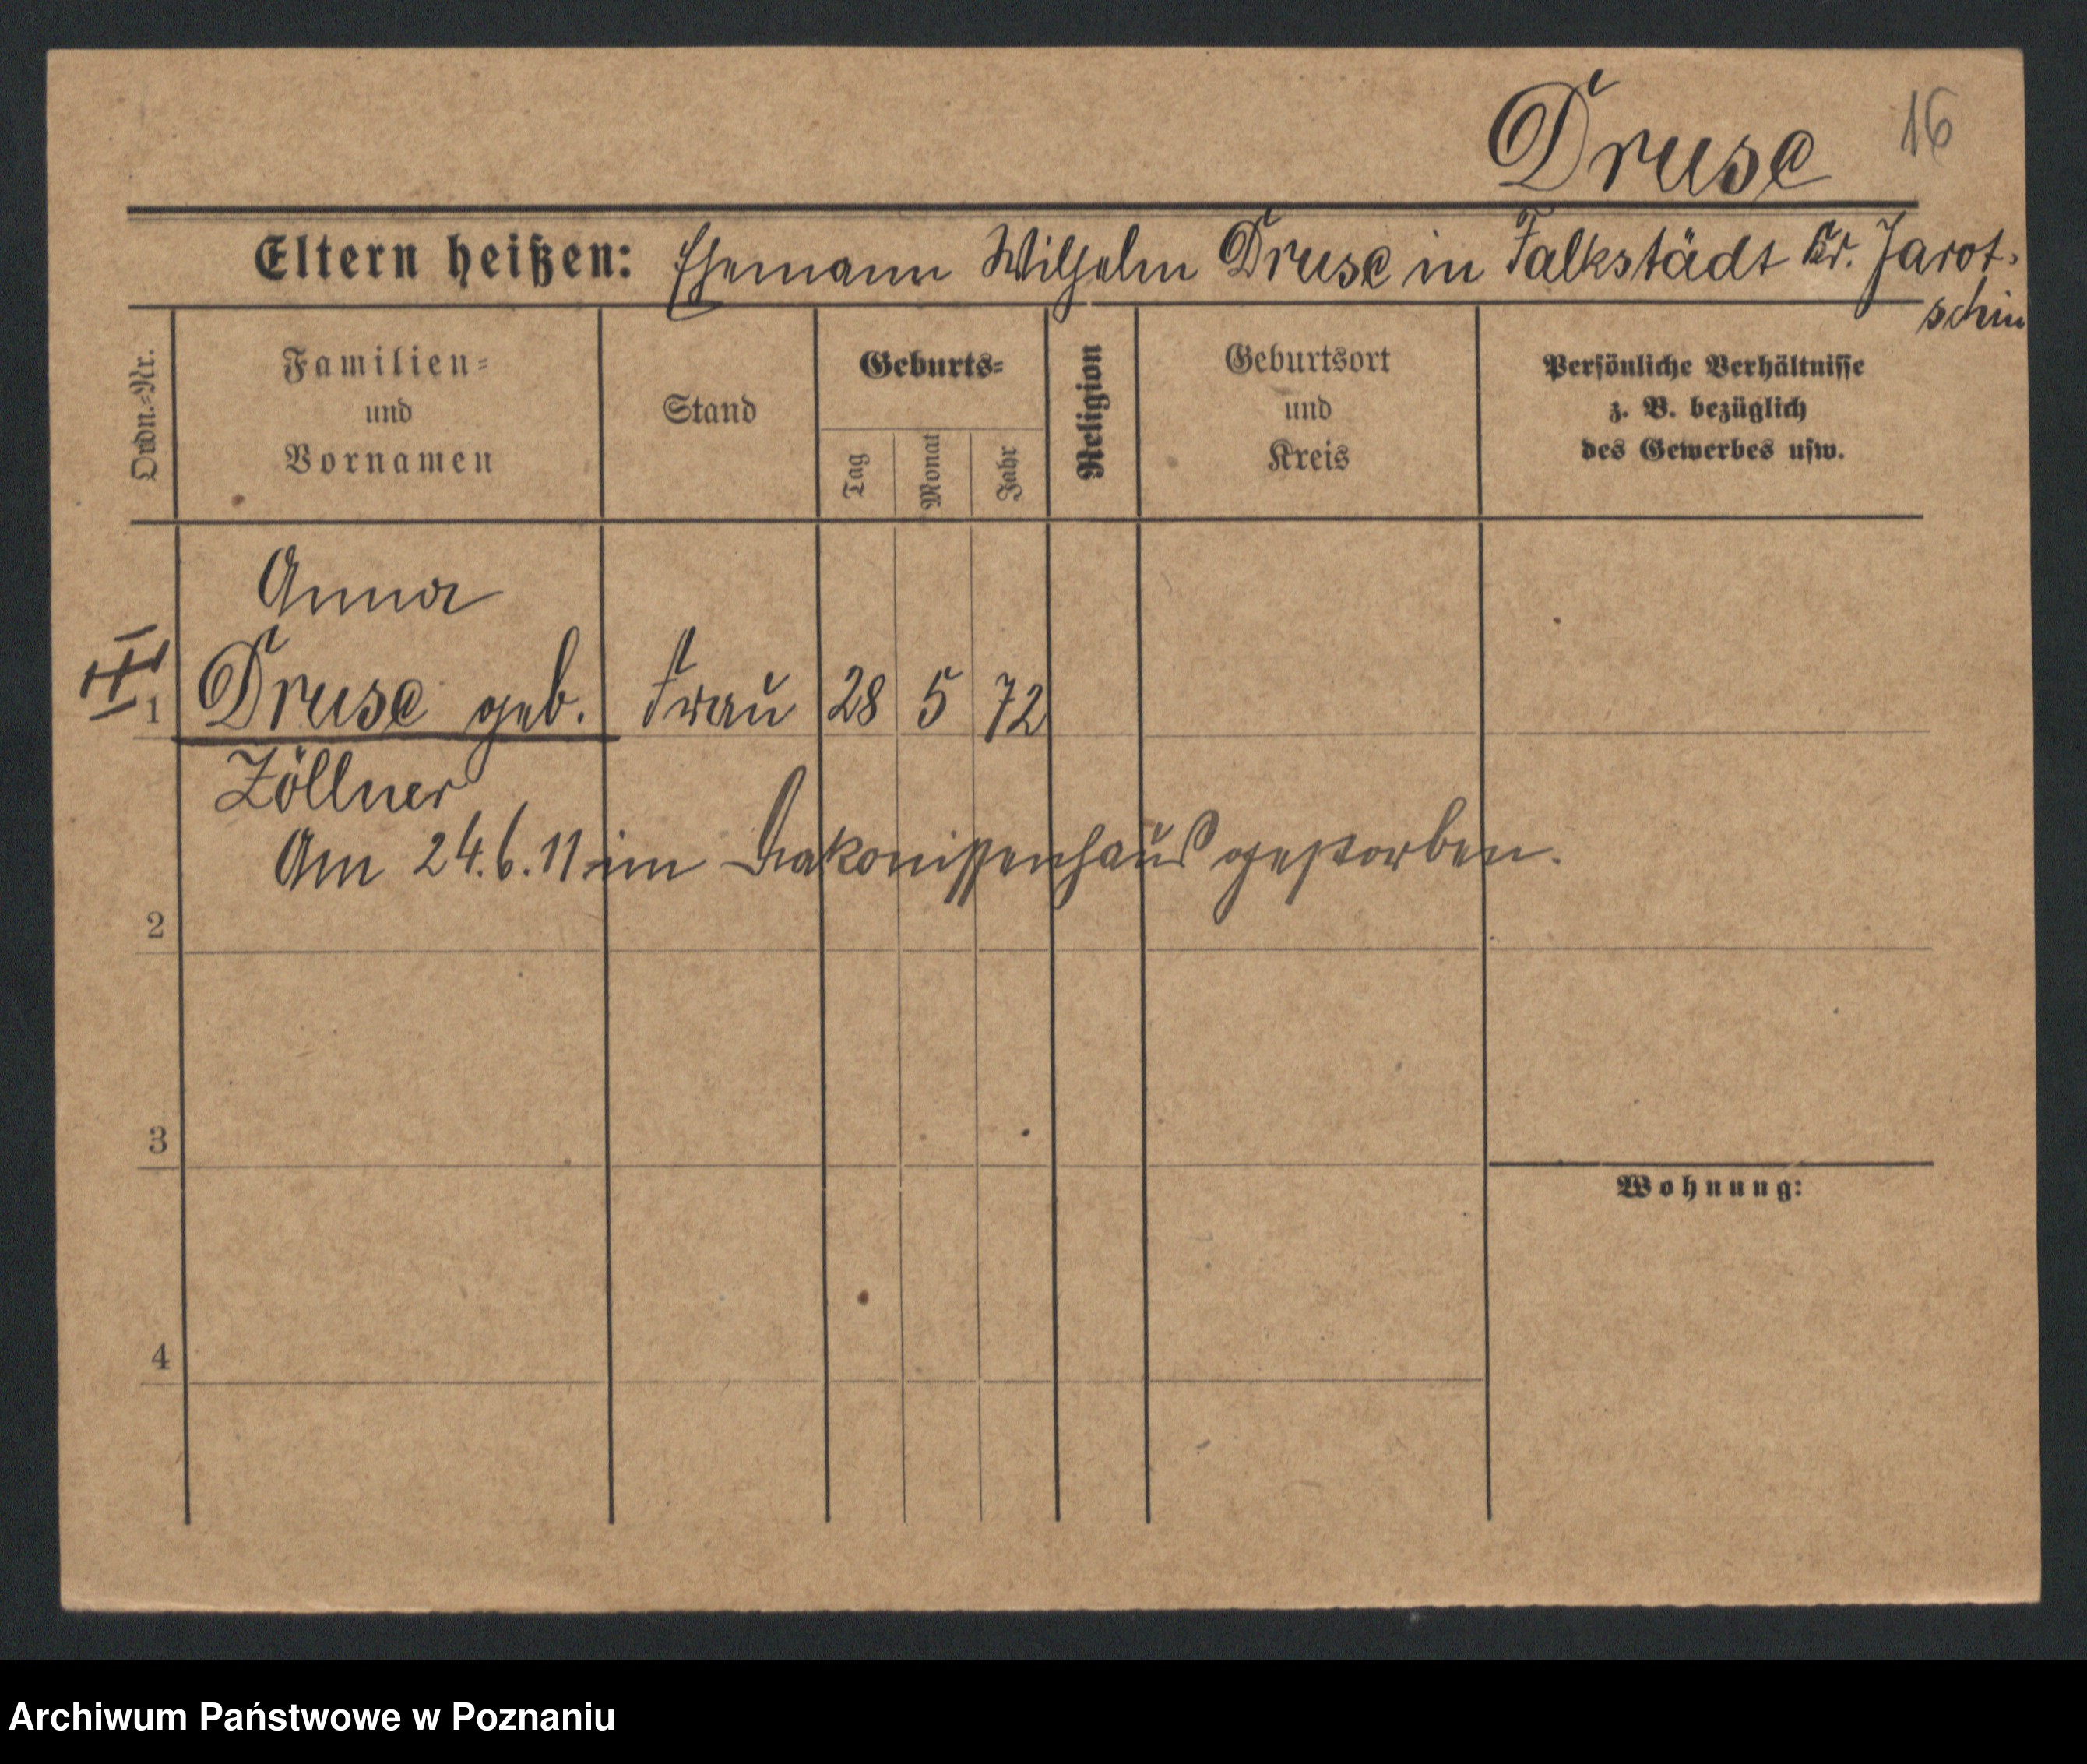 Druse 16
Eltern heißen: Ehemann Wilhelm Druse in Falkstädt Kr. Jarot-
schin
Ordn.=Nr.
Familien=
und
Vornamen
Stand
Geburts=
Tag
Monat
Jahr
Religion
Geburtsort
und
Kreis
Persönliche Verhältnisse
z. B. bezüglich
des Gewerbes usw.
Anna
1 Druse geb. Frau 28 5 72
Zöllner
Am 24.6.11 im Diakonissenhaus gestorben.
2
3
Wohnung:
4
Archiwum Państwowe w Poznaniu